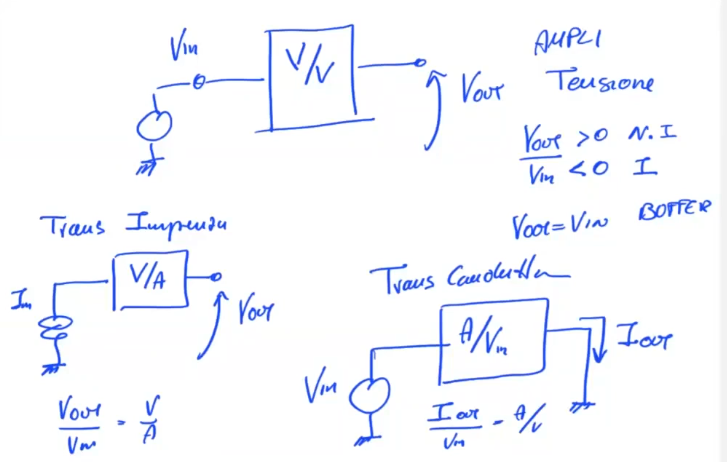 Vin
V/V
Vout
AMPLI
Tensione
Vout >0 N.I
Vin <0 I
Vout = VIN BUFFER
Trans Impedenza
Iin
V/A
Vout
Vout = V
Vin A
Trans Conduttanza
Vin
A/Vin
Iout
Iout = A/V
Vin